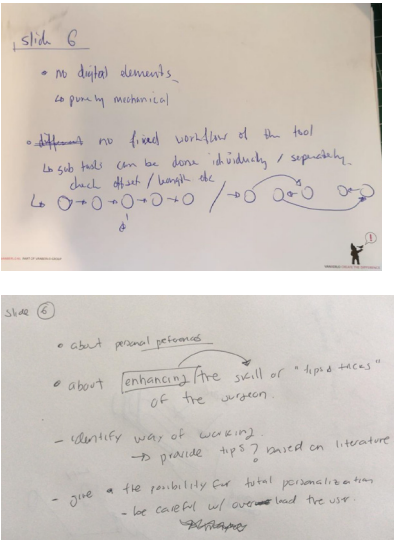 slide 6
• no digital elements
↳ purely mechanical
• no fixed workflow of the tool
↳ sub tasks can be done individually / separately
check offset / length etc
slide 6
• about personal preferences
• about enhancing the skill or "tips & tricks"
of the surgeon.
- identify way of working
→ provide tips? based on literature
- give the possibility for total personalization
- be careful w/ load the user.